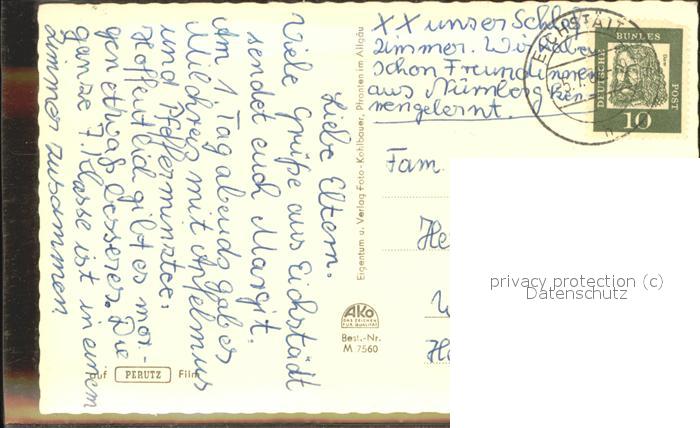 Liebe Eltern.
Viele Grüße aus Eichstädt
sendet euch Margit.
Am 1 Tag abends gab es
Milchreis mit Apfelmus
und Pfefferminztee.
Hoffentlich gibt es mor-
gen etwas besseres. Die
ganze 7. Klasse ist in einem
Zimmer zusammen.
XX unser Schlaf
zimmer. Wir haben
schon Freundinnen
aus Nürnberg ken-
nengelernt.
Fam.
He
H
Eigentum u. Verlag Foto-Kohlbauer, Pfronten im Allgäu
AKO
DAS ZEICHEN
FÜR QUALITÄT
Best.-Nr.
M 7560
Auf PERUTZ Film
EICHSTÄTT
DEUTSCHE
BUNDES
POST
Dürer
10
privacy protection (c)
Datenschutz